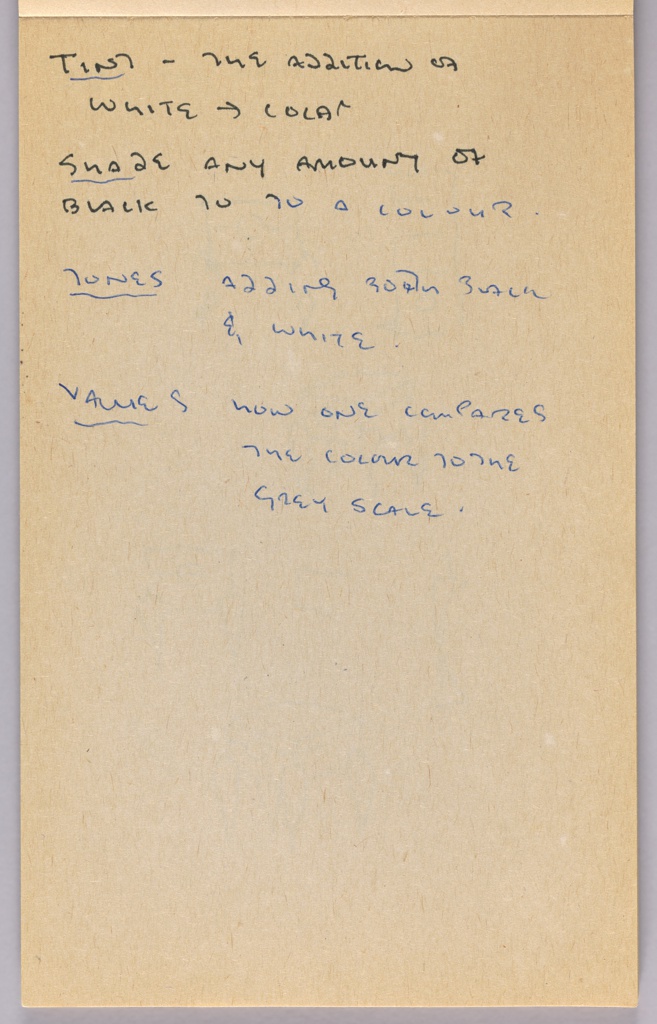 TINT - THE ADDITION OF
WHITE → COLAr
SHADE ANY AMOUNT OF
BLACK TO TO A COLOUR.
TONES ADDING BOTH BLACK
& WHITE.
VALUES HOW ONE COMPARES
THE COLOUR TO THE
GREY SCALE.